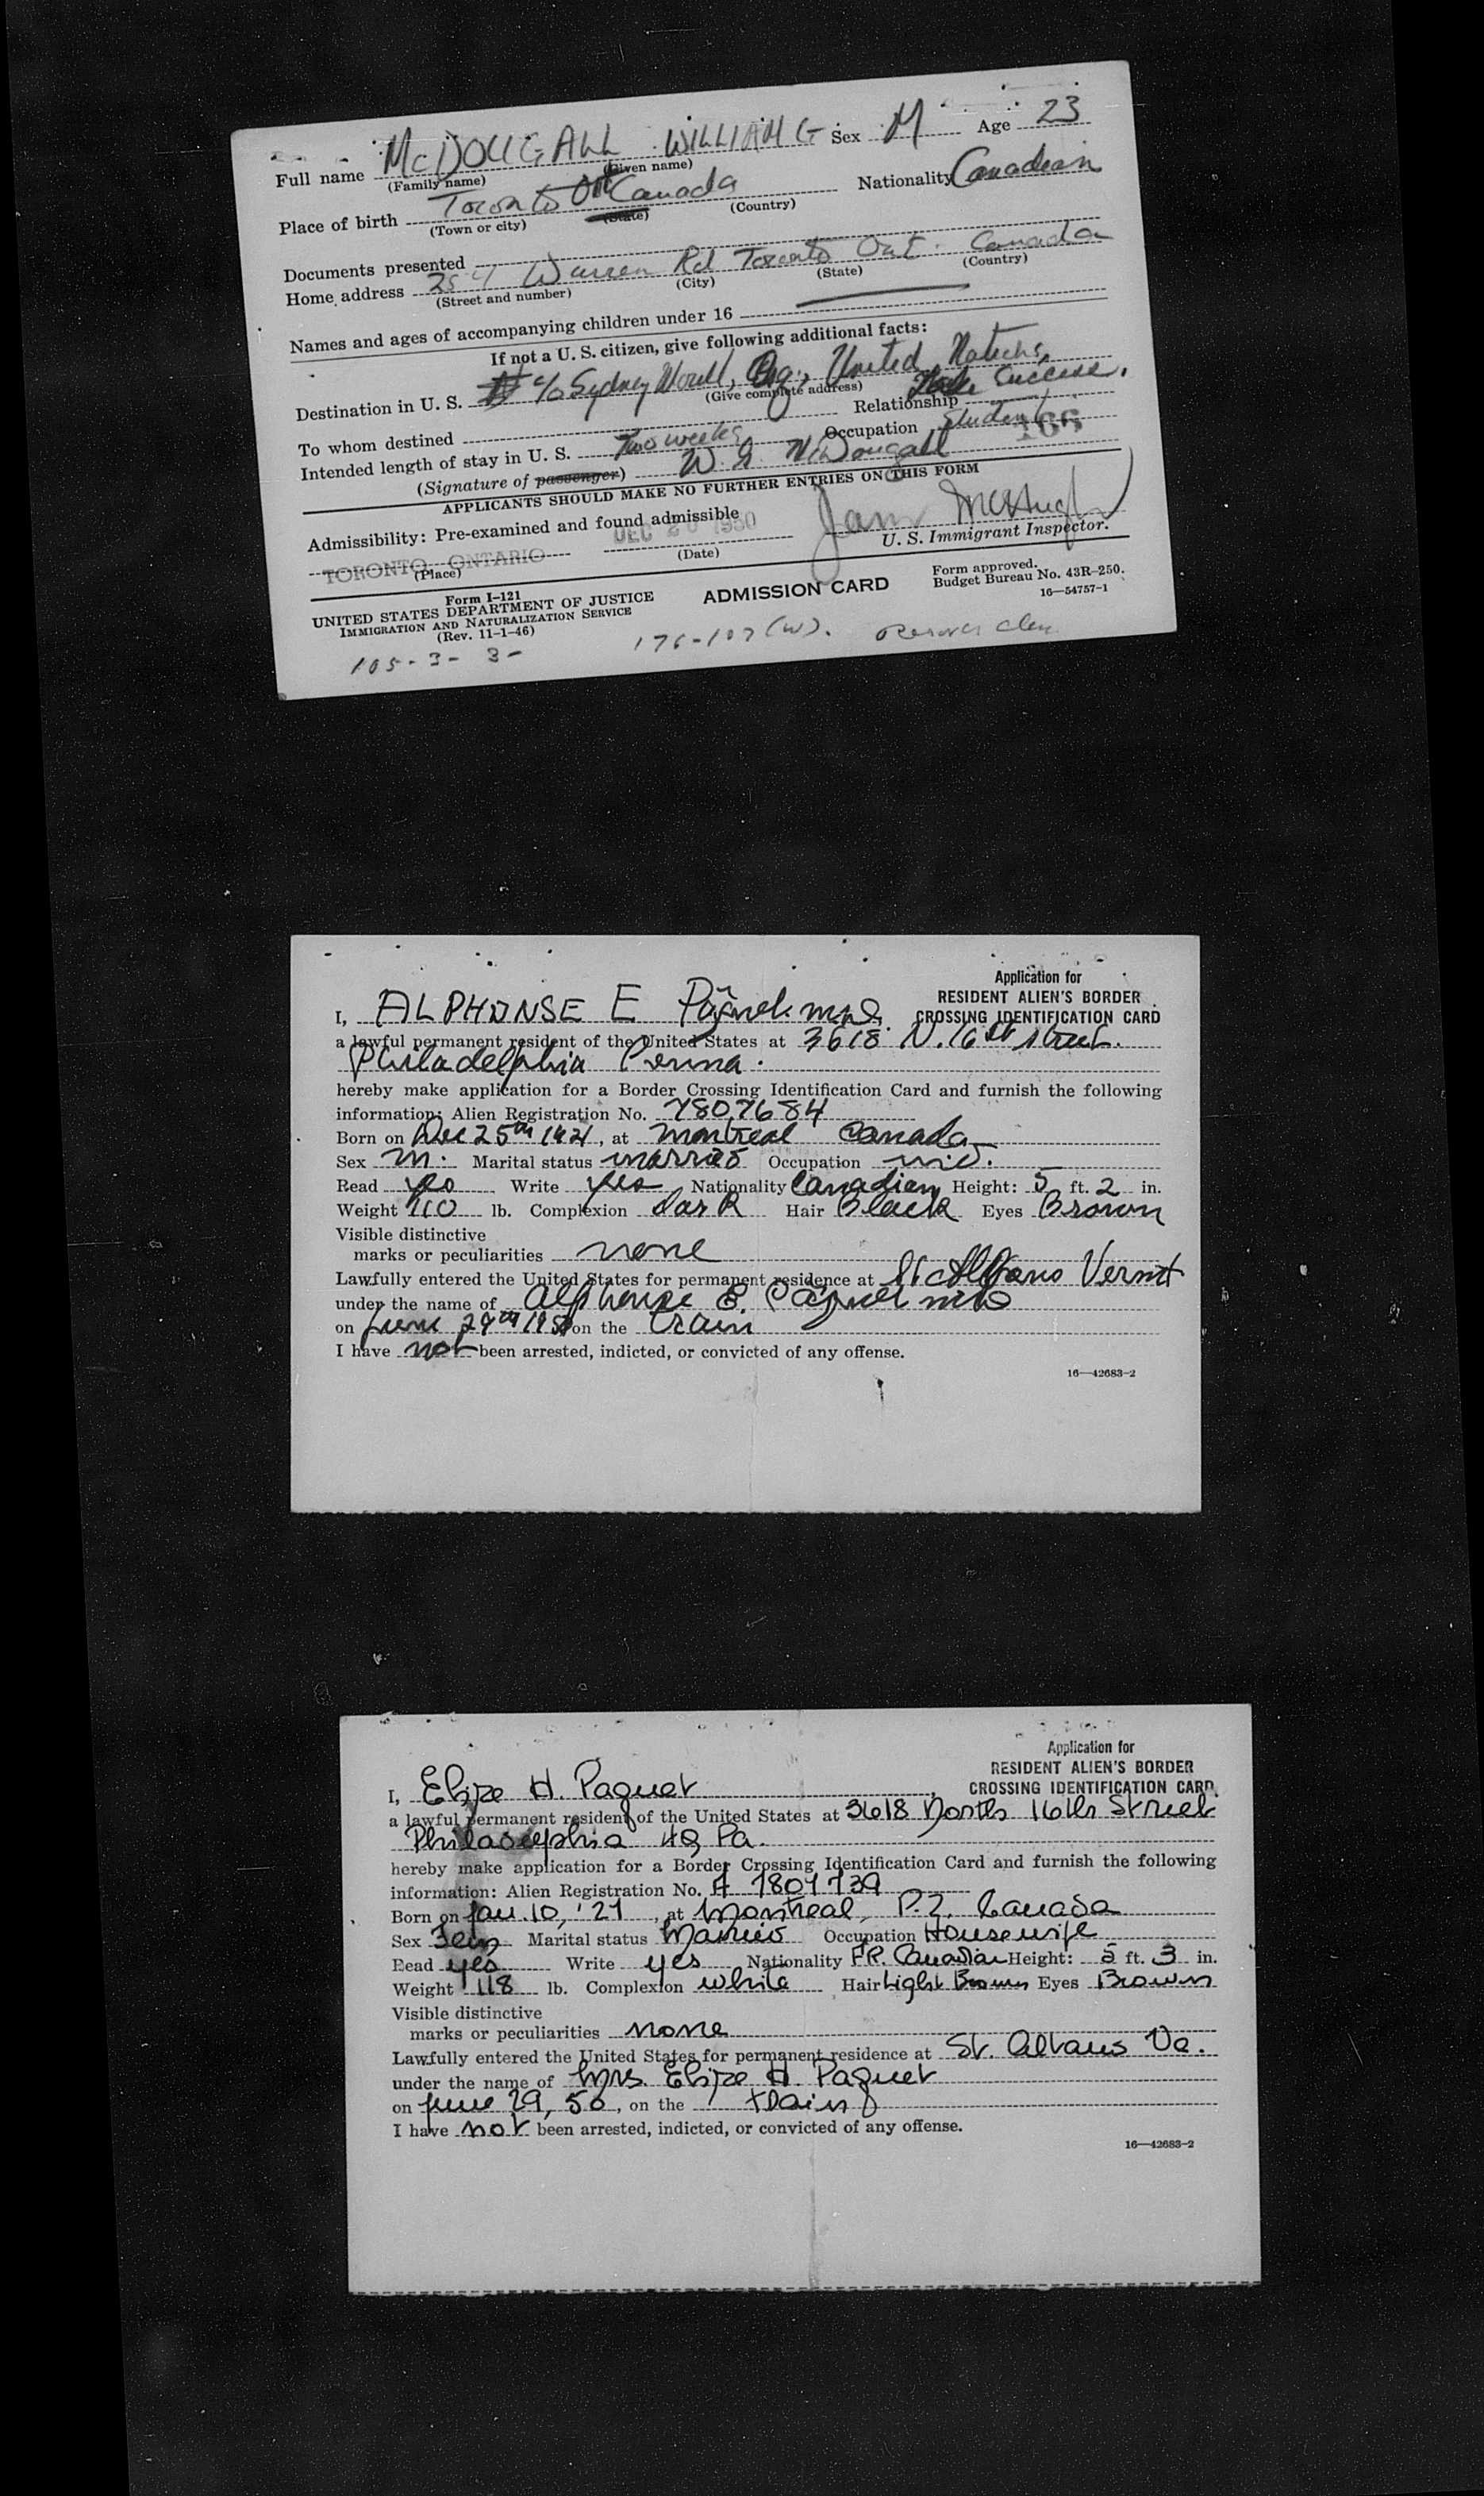 Full name McDOUGALL WILLIAM G Sex M Age 23
(Family name) (Given name)
Place of birth Toronto Ont Canada Nationality Canadian
(Town or city) (State) (Country)
Documents presented
Home address 254 Warren Rd Toronto Ont. Canada
(Street and number) (City) (State) (Country)
Names and ages of accompanying children under 16
If not a U. S. citizen, give following additional facts:
Destination in U. S. c/o Sydney United Nations, Lake Success.
(Give complete address)
To whom destined Relationship
Intended length of stay in U. S. Two weeks Occupation Student
166
(Signature of passenger) W. G. McDougall
APPLICANTS SHOULD MAKE NO FURTHER ENTRIES ON THIS FORM
Admissibility: Pre-examined and found admissible
TORONTO, ONTARIO DEC 20 1950 McHugh
(Place) (Date) U. S. Immigrant Inspector.
Form I-121
UNITED STATES DEPARTMENT OF JUSTICE
IMMIGRATION AND NATURALIZATION SERVICE
(Rev. 11-1-46)
ADMISSION CARD
Form approved.
Budget Bureau No. 43R-250.
16—54757-1
105-3-3- 176-107(W).
Application for
RESIDENT ALIEN'S BORDER
CROSSING IDENTIFICATION CARD
I, ALPHONSE E Paquet
a lawful permanent resident of the United States at 3618 N. 16th street.
Philadelphia Penna.
hereby make application for a Border Crossing Identification Card and furnish the following
information: Alien Registration No. 7807684
Born on Dec 25th 1921, at Montreal Canada
Sex M. Marital status married Occupation M.D.
Read yes Write yes Nationality Canadian Height: 5 ft. 2 in.
Weight 110 lb. Complexion dark Hair Black Eyes Brown
Visible distinctive
marks or peculiarities none
Lawfully entered the United States for permanent residence at St Albans Vermt
under the name of Alphonse E. Paquet
on June 29th 1950 on the train
I have not been arrested, indicted, or convicted of any offense.
16—42683-2
Application for
RESIDENT ALIEN'S BORDER
CROSSING IDENTIFICATION CARD
I, Elize H. Paquet
a lawful permanent resident of the United States at 3618 North 16th Street
Philadelphia 40 Pa.
hereby make application for a Border Crossing Identification Card and furnish the following
information: Alien Registration No. A 7807739
Born on Jan. 10, '27, at Montreal, P.Q. Canada
Sex Fem Marital status Married Occupation Housewife
Read yes Write yes Nationality FR. Canadian Height: 5 ft. 3 in.
Weight 118 lb. Complexion white Hair Light Brown Eyes Brown
Visible distinctive
marks or peculiarities none
Lawfully entered the United States for permanent residence at St. Albans Ve.
under the name of Mrs. Elize H. Paquet
on June 29, 50, on the train
I have not been arrested, indicted, or convicted of any offense.
16—42683-2